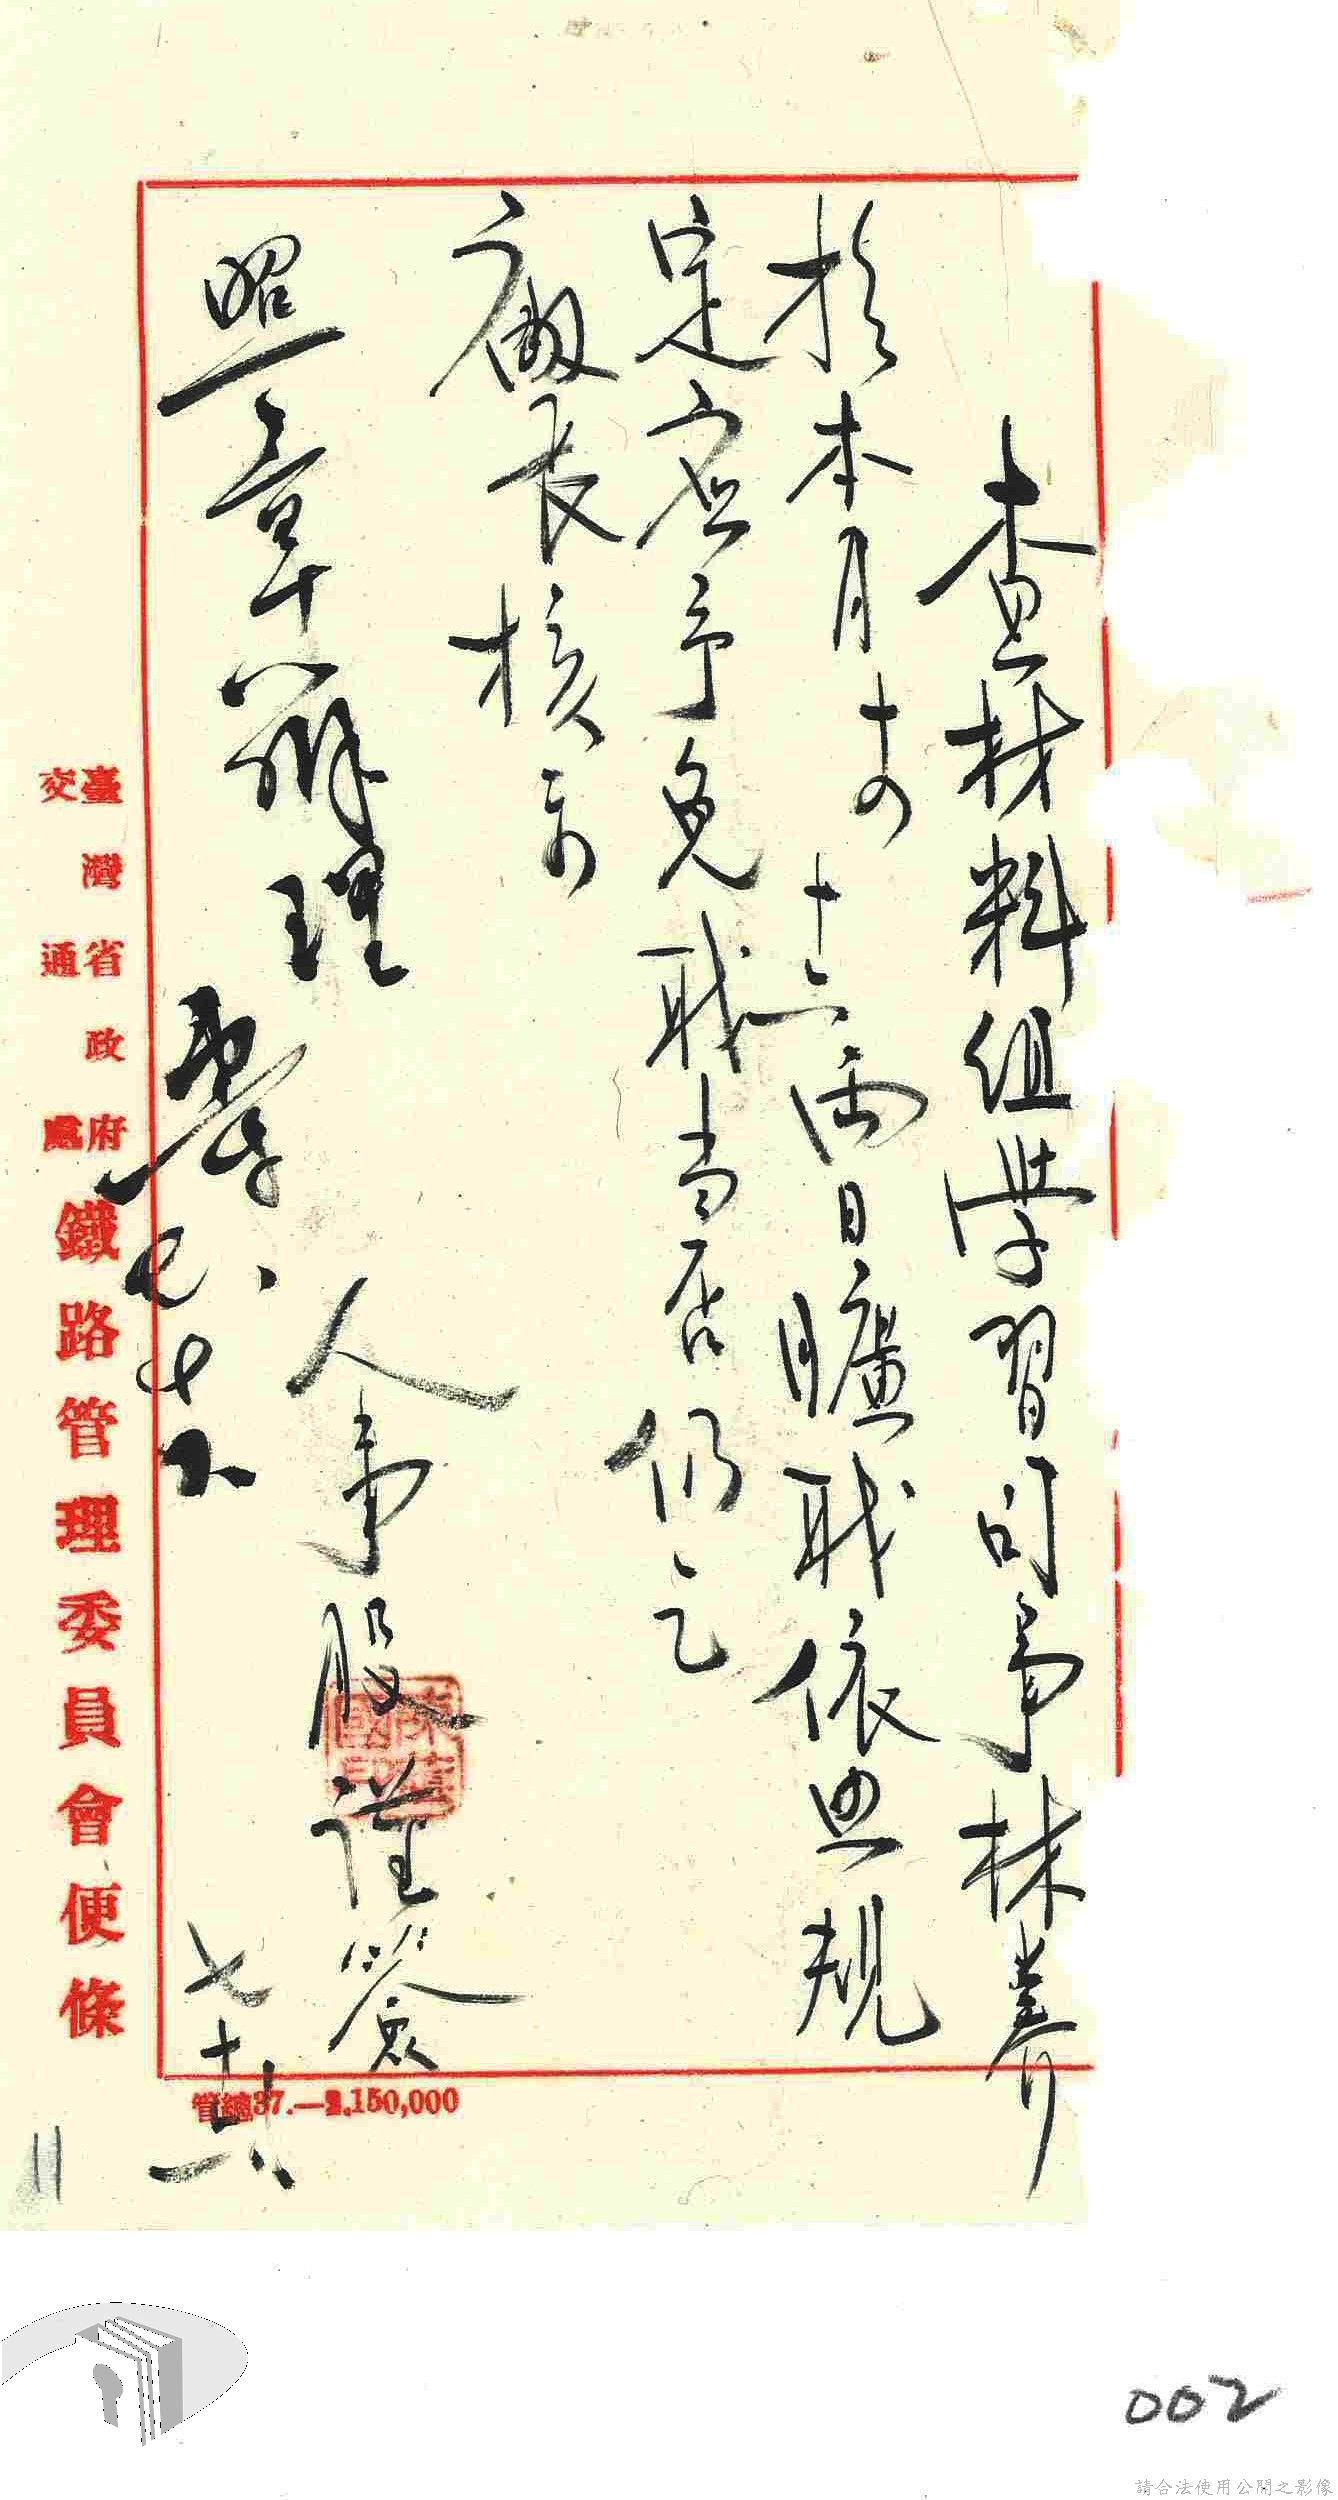 查材料組學習司事林養
於本月十四十六兩日曠職依照規
定应予免職当否仍乞
廠長核示
人事股謹簽
七十六
照章辦理
七、十六
臺灣省政府
交通處
鐵路管理委員會便條
管總37.—2.150,000
11
002
請合法使用公開之影像